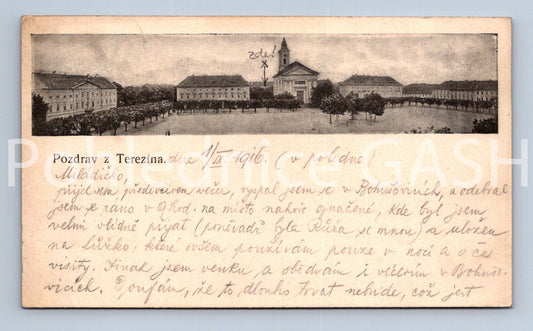 zde!
Pozdrav z Terezína. dne 1/VI 1916. (v poledne)
Miláčku,
přijel jsem předevčírem večer, vyspal jsem se v Bohušovicích, a odebral
jsem se ráno v 9 hod. na místo nahoře označené, kde byl jsem
velmi vlídně přijat (poněvadž byla Růža se mnou) a uložen
na lůžko, které ovšem používám pouze v noci a v čas
visity. Jinak jsem venku a obědvám i večeřím v Bohušo-
vicích. Doufám, že to dlouho trvat nebude, což jest
Pohlednice GASH